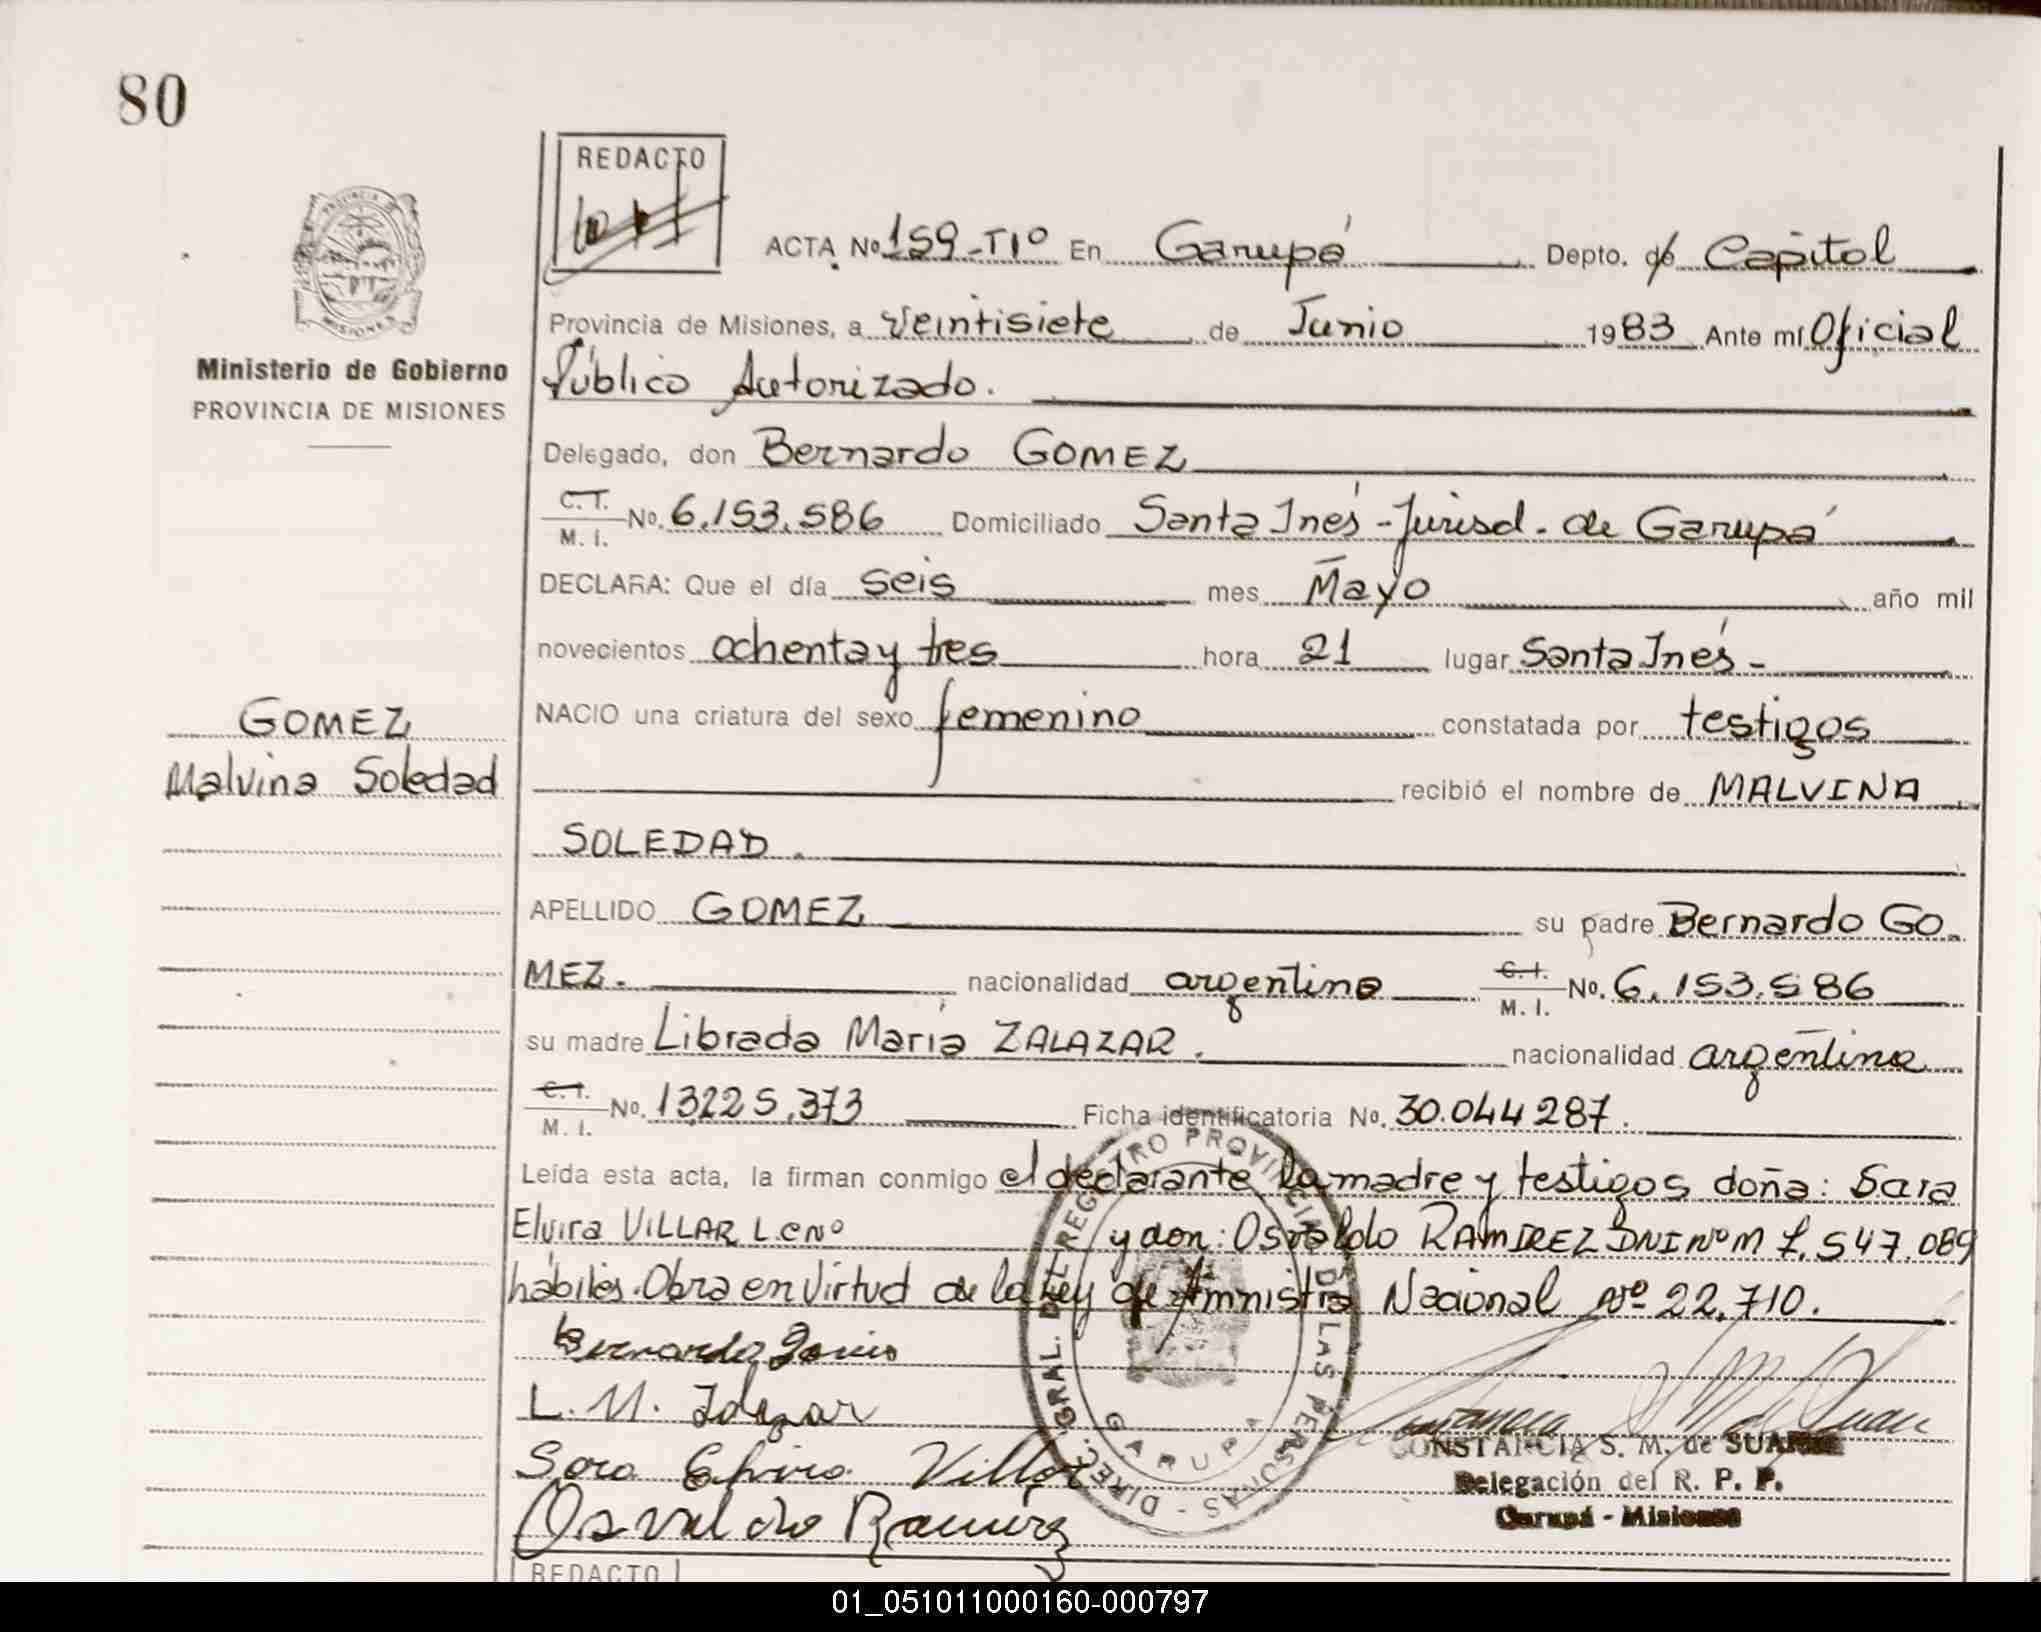 80
REDACTO
ACTA No. 159-TIº En Garupá Depto. Capitol
PROVINCIA
MISIONES
Provincia de Misiones, a veintisiete de Junio 1983 Ante mí Oficial
Ministerio de Gobierno
PROVINCIA DE MISIONES
Público Autorizado.
Delegado, don Bernardo GOMEZ
C.T. M. I. No. 6.153.586 Domiciliado Santa Inés - Jurisd. de Garupá
DECLARA: Que el día seis mes Mayo año mil
novecientos ochenta y tres hora 21 lugar Santa Inés -
NACIO una criatura del sexo femenino constatada por testigos
GOMEZ
Malvina Soledad
recibió el nombre de MALVINA
SOLEDAD.
APELLIDO GOMEZ su padre Bernardo GO
MEZ. nacionalidad argentina C.I. M. I. No. 6.153.586
su madre Librada María ZALAZAR. nacionalidad argentina
C.I. M. I. No. 13225.373 Ficha identificatoria No. 30.044287.
Leída esta acta, la firman conmigo el declarante la madre y testigos doña: Sara
Elvira VILLAR L.C Nº y don: Osvaldo RAMIREZ DNI Nº M 7.547.089
hábiles. Obra en virtud de la Ley de Amnistia Nacional Nº 22.710.
Bernardo
L. M. Zalazar
Sara Elvira Villar
Osvaldo Ramirez
DIREC. GRAL. DEL REGISTRO PROVINCIAL DE LAS PERSONAS -
GARUPA
CONSTANCIA S. M. de SUAREZ
Delegación del R. P. P.
Garupá - Misiones
REDACTO
01_051011000160-000797